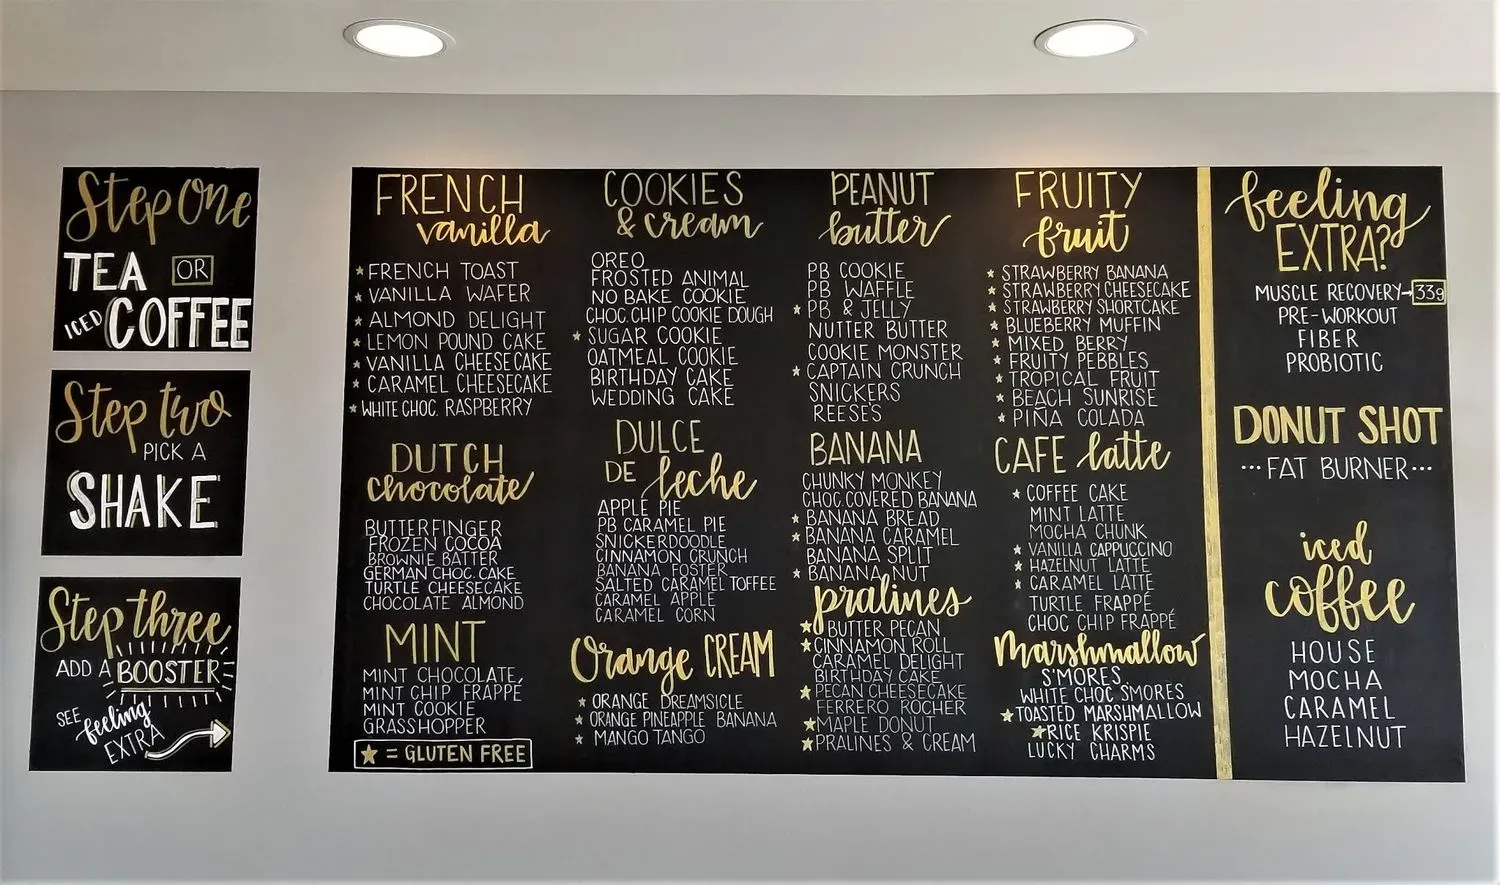 Step One
TEA OR
ICED COFFEE
Step two
PICK A
SHAKE
Step three
ADD A BOOSTER
SEE feeling
EXTRA
FRENCH
vanilla
★ FRENCH TOAST
★ VANILLA WAFER
★ ALMOND DELIGHT
★ LEMON POUND CAKE
★ VANILLA CHEESECAKE
★ CARAMEL CHEESECAKE
★ WHITE CHOC. RASPBERRY
DUTCH
chocolate
BUTTERFINGER
FROZEN COCOA
BROWNIE BATTER
GERMAN CHOC. CAKE
TURTLE CHEESECAKE
CHOCOLATE ALMOND
MINT
MINT CHOCOLATE
MINT CHIP FRAPPÉ
MINT COOKIE
GRASSHOPPER
★ = GLUTEN FREE
COOKIES
& cream
OREO
FROSTED ANIMAL
NO BAKE COOKIE
CHOC. CHIP COOKIE DOUGH
★ SUGAR COOKIE
OATMEAL COOKIE
BIRTHDAY CAKE
WEDDING CAKE
DULCE
DE leche
APPLE PIE
PB CARAMEL PIE
SNICKERDOODLE
CINNAMON CRUNCH
BANANA FOSTER
SALTED CARAMEL TOFFEE
CARAMEL APPLE
CARAMEL CORN
Orange CREAM
★ ORANGE DREAMSICLE
★ ORANGE PINEAPPLE BANANA
★ MANGO TANGO
PEANUT
butter
PB COOKIE
PB WAFFLE
★ PB & JELLY
NUTTER BUTTER
COOKIE MONSTER
★ CAPTAIN CRUNCH
SNICKERS
REESE'S
BANANA
CHUNKY MONKEY
CHOC. COVERED BANANA
★ BANANA BREAD
★ BANANA CARAMEL
BANANA SPLIT
★ BANANA NUT
pralines
★ BUTTER PECAN
★ CINNAMON ROLL
CARAMEL DELIGHT
BIRTHDAY CAKE
★ PECAN CHEESECAKE
FERRERO ROCHER
★ MAPLE DONUT
★ PRALINES & CREAM
FRUITY
fruit
★ STRAWBERRY BANANA
★ STRAWBERRY CHEESECAKE
★ STRAWBERRY SHORTCAKE
★ BLUEBERRY MUFFIN
★ MIXED BERRY
★ FRUITY PEBBLES
★ TROPICAL FRUIT
★ BEACH SUNRISE
★ PIÑA COLADA
CAFE latte
★ COFFEE CAKE
MINT LATTE
MOCHA CHUNK
★ VANILLA CAPPUCCINO
★ HAZELNUT LATTE
★ CARAMEL LATTE
TURTLE FRAPPÉ
CHOC CHIP FRAPPÉ
Marshmallow
S'MORES
WHITE CHOC S'MORES
★ TOASTED MARSHMALLOW
★ RICE KRISPIE
LUCKY CHARMS
feeling
EXTRA?
MUSCLE RECOVERY → 33g
PRE-WORKOUT
FIBER
PROBIOTIC
DONUT SHOT
···FAT BURNER···
iced
coffee
HOUSE
MOCHA
CARAMEL
HAZELNUT